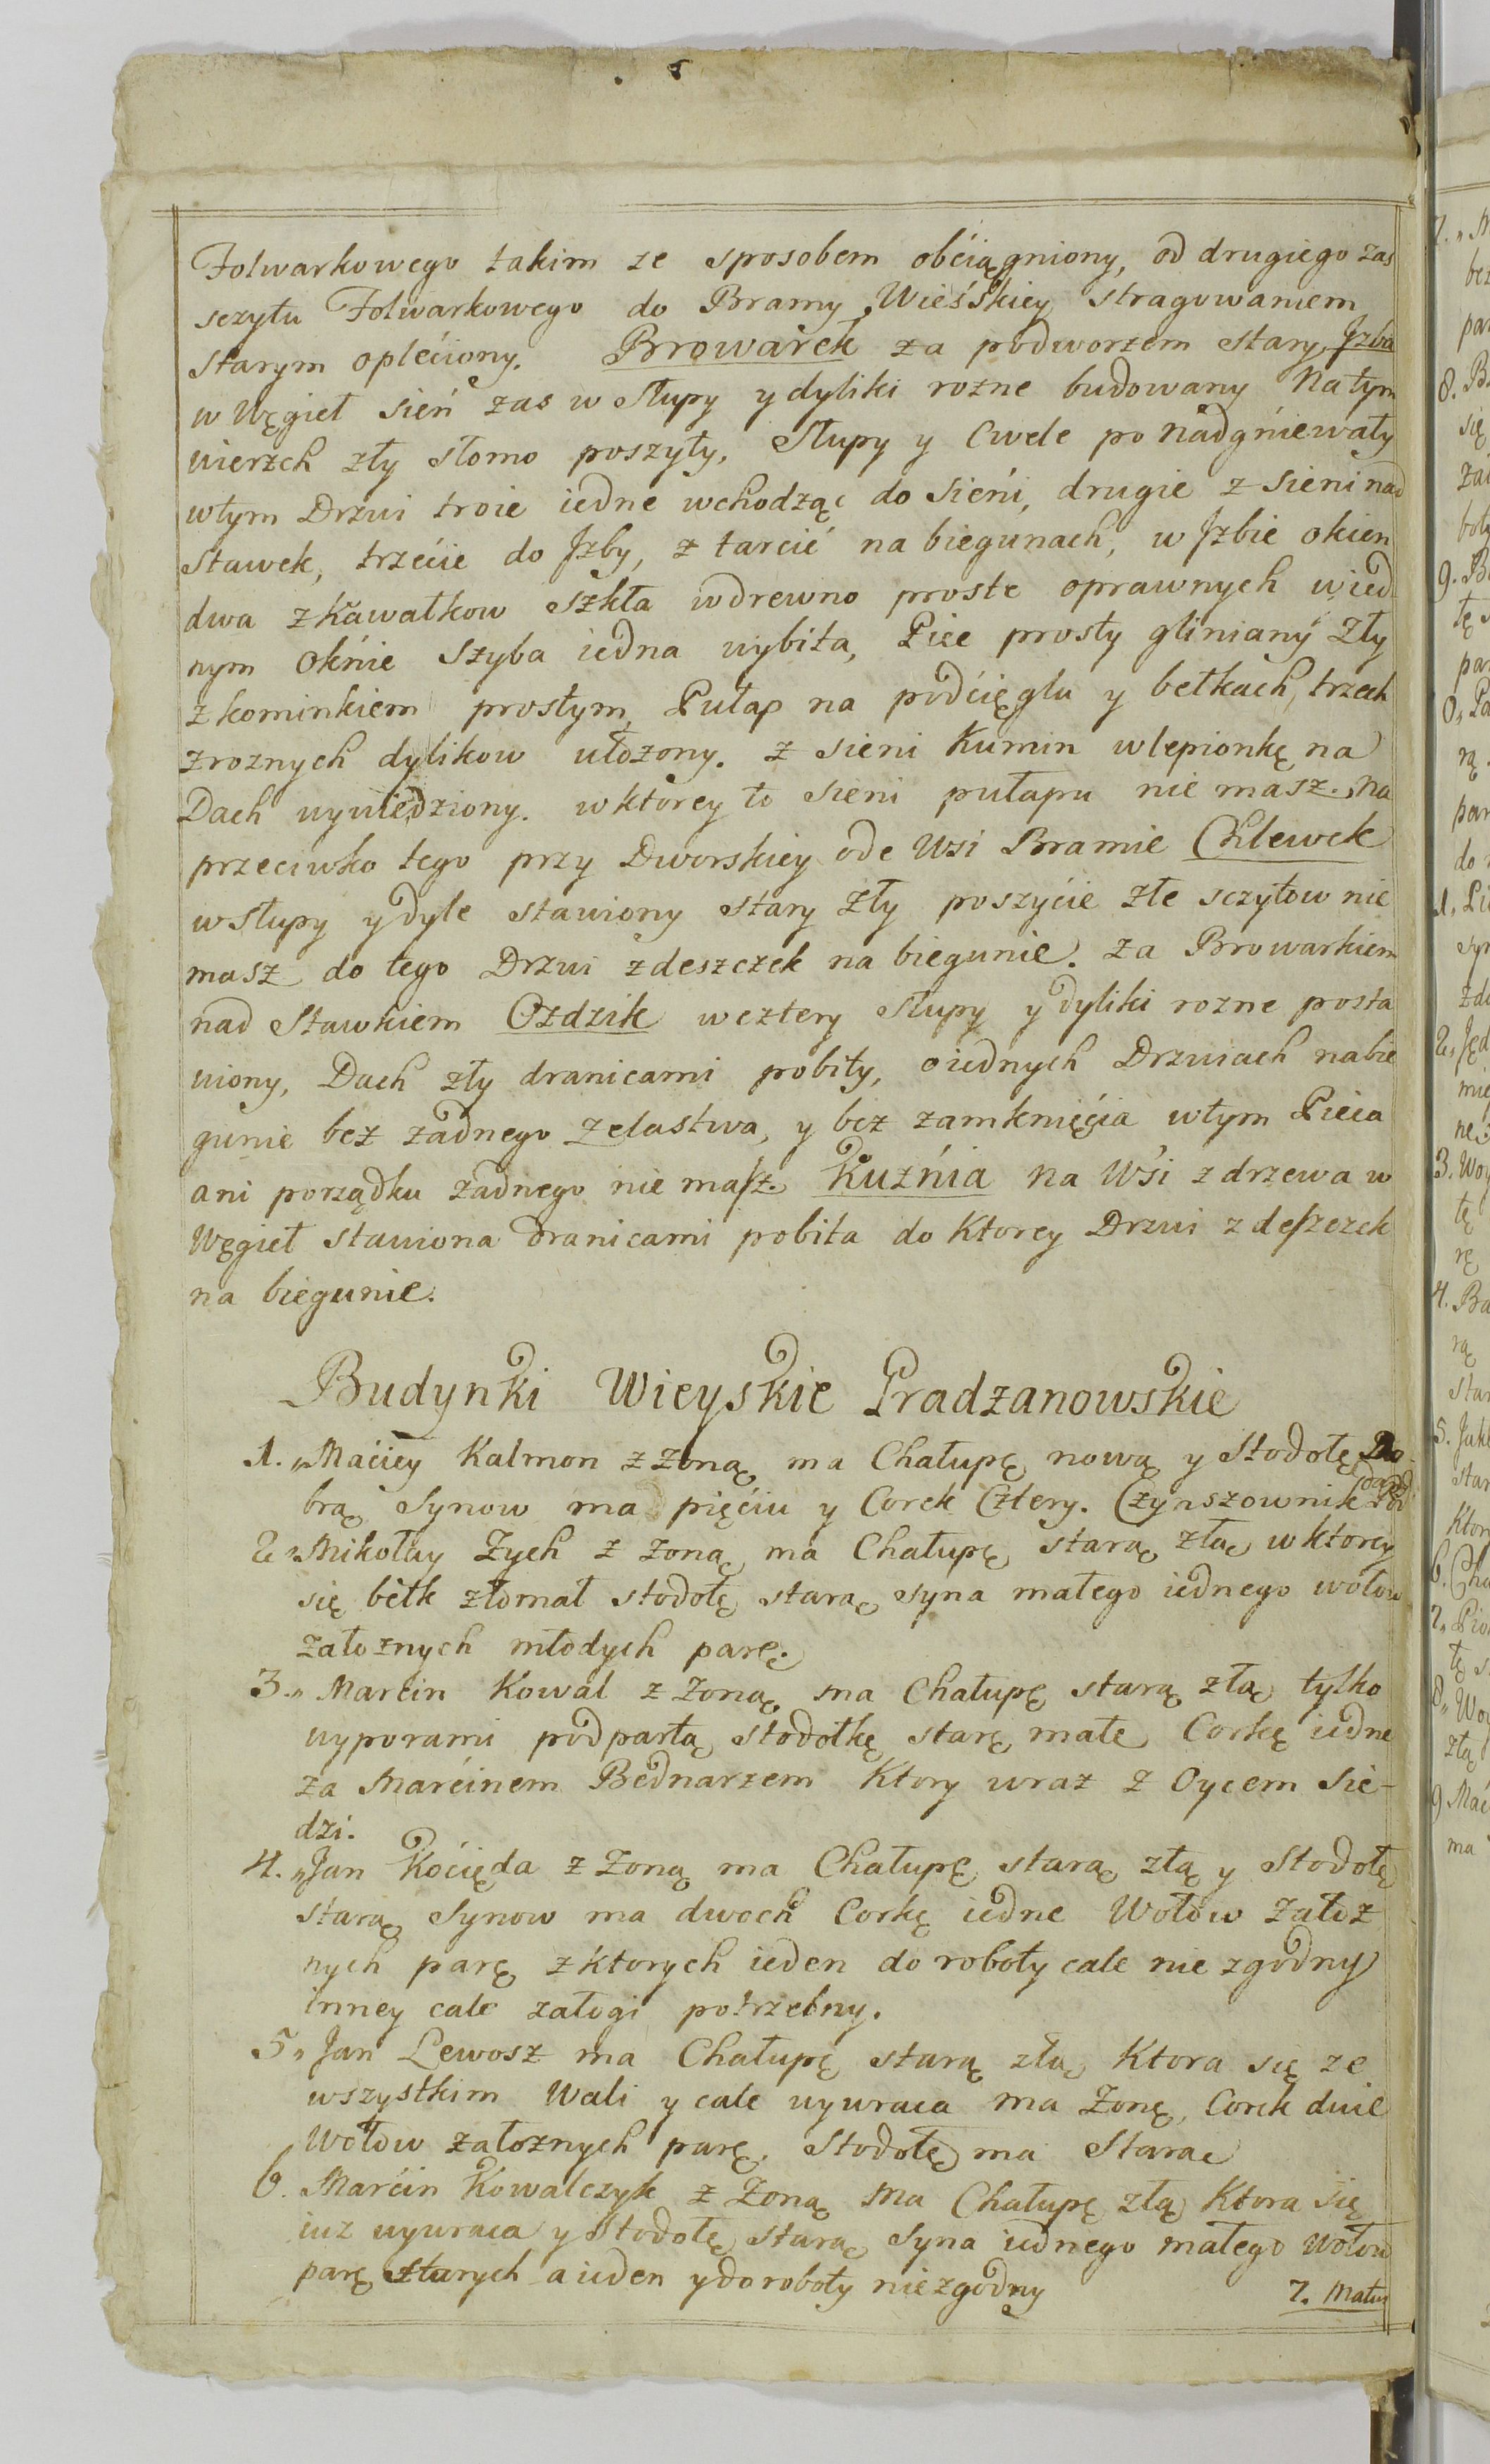 Folwarkowego takim ze sposobem obćiągniony, od drugiego zas
sczytu Folwarkowego do Bramy Wieśśkiey stragowaniem
starym oplećiony. Browarek za podworzem stary Jzba
w Węgieł sień zas w Słupy y dyliki rozne budowany Na tym
wierzch zły słomo poszyty, Słupy y Cwele po nadgniewały
w tym Drzwi troie iedne wchodząc do Sieńi, drugie z Sieni nad
Stawek, trzećie do Jzby, z tarcić na biegunach, w Jzbie okien
dwa z kawałkow Szkła w drewno proste oprawnych w ied
nym oknie Szyba iedna wybita, Piec prosty gliniany zły
z kominkiem prostym, Pułap na podćięglu y belkach, trzech
z roznych dylikow ułozony. z Sieni Kumin w lepionkę na
Dach wywiedziony. w ktorey to Sieni pułapu nie masz. na
przeciwko tego przy Dworskiey ode Wsi Bramie Chlewek
w Słupy y dyle stawiony stary zły poszyćie złe sczytow nie
masz do tego Drzwi z deszczek na biegunie. za Browarkiem
nad Stawkiem Ozdzik w cztery Słupy y dyliki rozne posta
wiony, Dach zły dranicami pobity, o iednych Drzwiach na bie
gunie bez zadnego zelastwa, y bez zamknięćia w tym Pieca
ani porządku zadnego nie masz. Kuźnia na Wśi z drzewa w
Węgieł stawiona dranicami pobita do Ktorey Drzwi z deszczek
na biegunie.
Budynki Wieyskie Pradzanowskie
1. „Maćiey Kalmon z zoną ma Chałupę nową y Stodołę Do
brą Synow ma pięćiu y Corek Cztery. Czynszownik
2 „Mikołay Zych z zoną ma Chałupę starą złą w ktorey
się belk złomał stodołę starą syna małego iednego wołow
załoznych młodych parę.
3. „Marćin Kowal z Zoną ma Chałupę starą złą tylko
wyporami podpartą stodołkę starę małe Corkę iedne
za Marćinem Bednarzem Ktory wraz z Oycem Sie-
dzi.
4. „Jan Koćięda z Zoną ma Chałupę starą złą y Stodołę
starą Synow ma dwoch Corkę iedne Wołow Załoz
nych parę z ktorych ieden do roboty cale nie zgodny
inney cale załogi potrzebny.
5 „Jan Lewosz ma Chałupę starą złą Ktora się ze
wszystkim Wali y cale wywraca ma Zonę, Corek dwie
Wołow załoznych parę. Stodołę ma Stara
6. Marćin Kowalczyk z Zoną Ma Chałupę złą Ktora się
iuz wywraca y Stodołę starą Syna iednego małego Wołow
parę starych a ieden y do roboty niezgodny
7. Matu